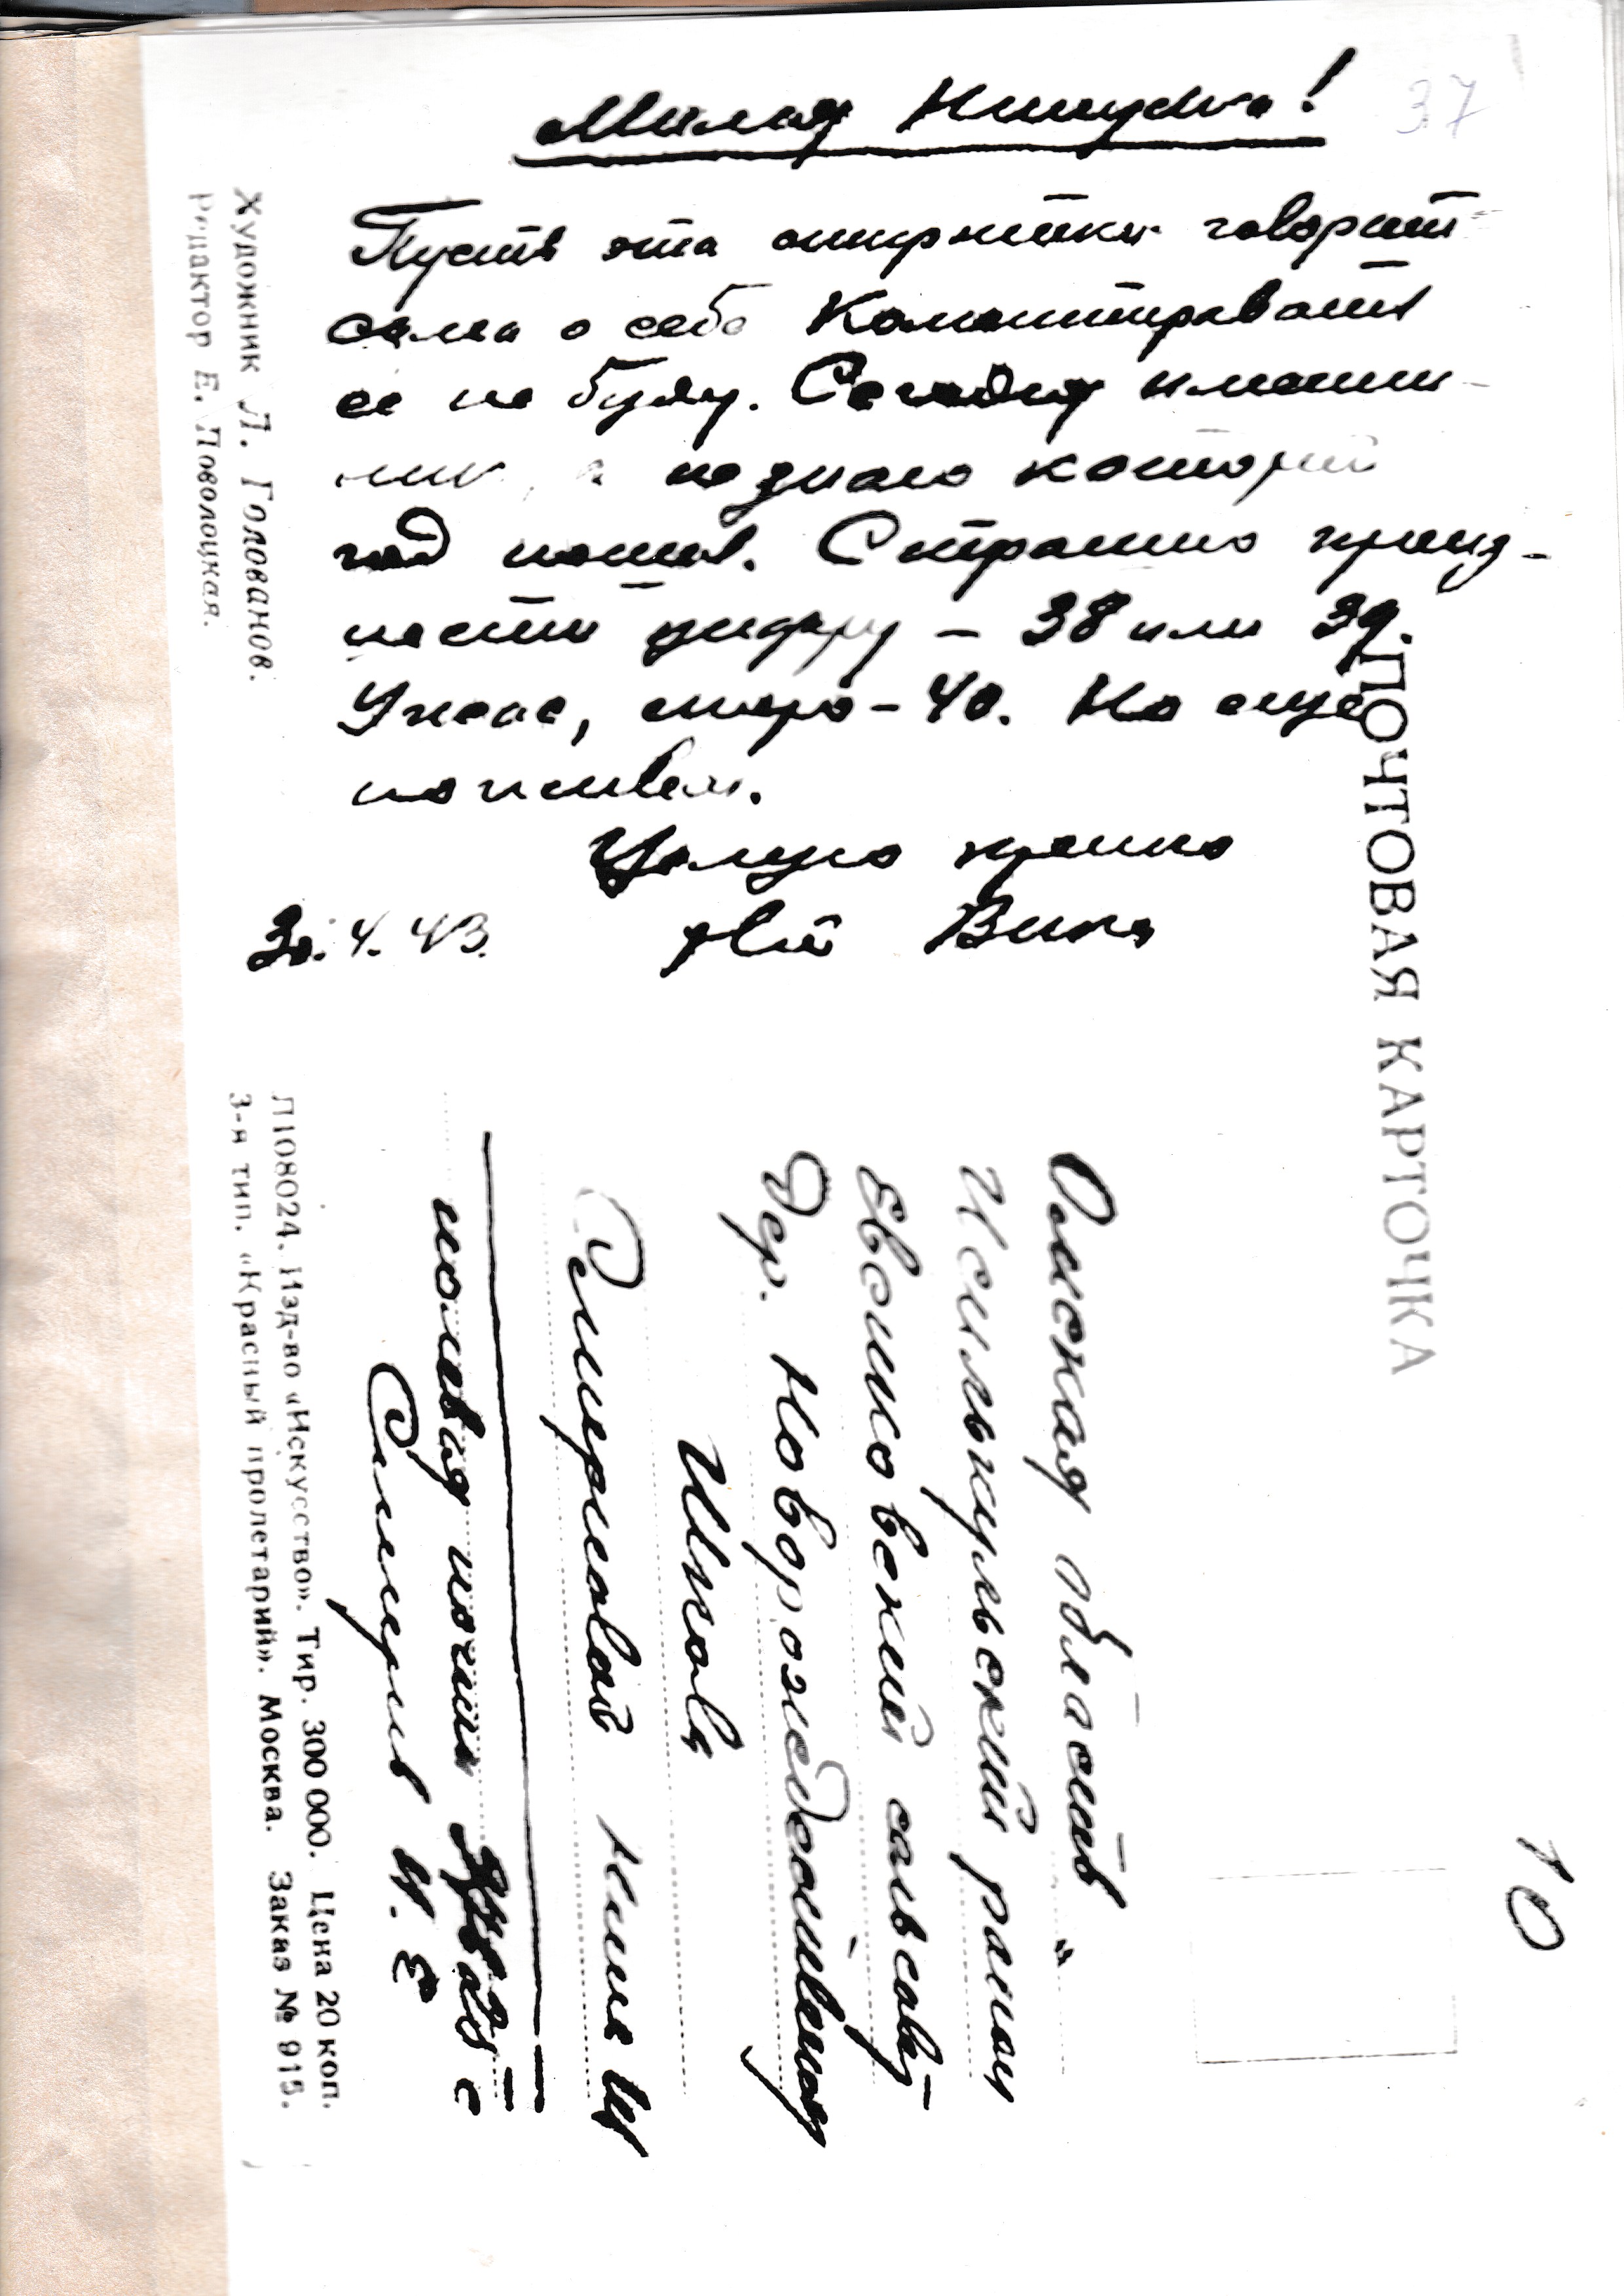 37
Милая Нинусика!
Пусть эта открытка говорит
сама о себе Комментировать
ее не буду. Сегодня именин-
ник, а не знаю который
год пошел. Страшно произ-
нести цифру – 38 или 39.
Ужас, скоро – 40. Но еще
поживем.
Целую крепко
твой Витя
30.4.43.
Художник Л. Голованов.
Редактор Е. Поволоцкая.
ПОЧТОВАЯ КАРТОЧКА
10
Омская область
Исилькульский район
Евсюковский сельсове-
Дер. Новорождественка
Школа
Смирновой Нине И
полевая почта
Смирнов И. Е
Л108024. Изд-во «Искусство». Тир. 300 000. Цена 20 коп.
3-я тип. «Красный пролетарий». Москва. Заказ № 915.